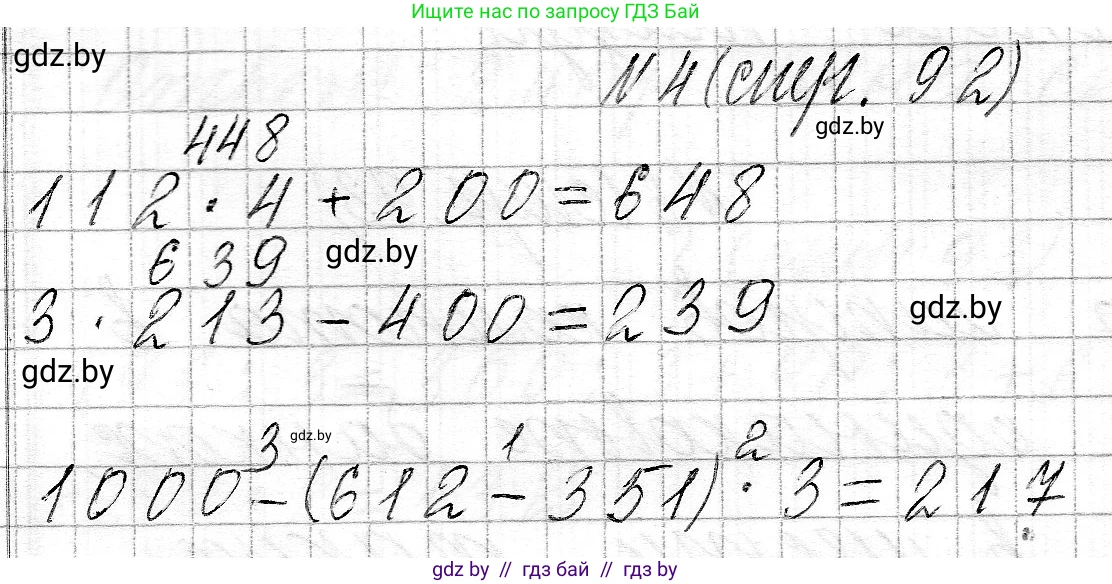 Ищите нас по запросу ГДЗ Бай
gdz.by
№ 4 (стр. 92)
gdz.by
448
112 · 4 + 200 = 648
639
gdz.by
3 · 213 - 400 = 239
gdz.by
gdz.by
3 gdz.by 1 2
1000 - (612 - 351) · 3 = 217
gdz.by // гдз бай // gdz.by